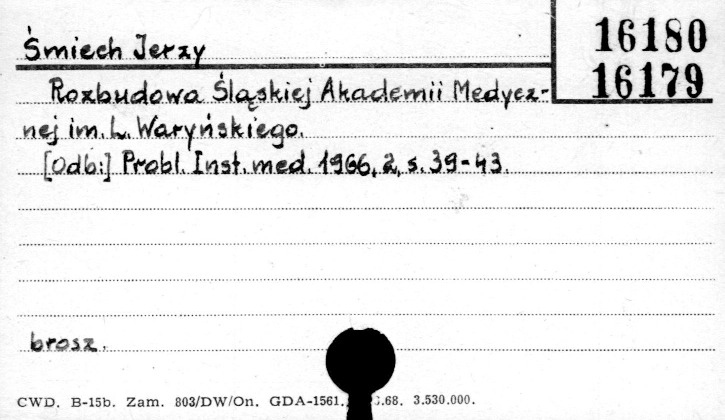 Śmiech Jerzy
16180
16179
Rozbudowa Śląskiej Akademii Medycz-
nej im. L. Waryńskiego.
[Odb:] Probl. Inst. med. 1966, 2, s. 39-43.
brosz.
CWD. B-15b. Zam. 803/DW/On. GDA-1561. .68. 3.530.000.